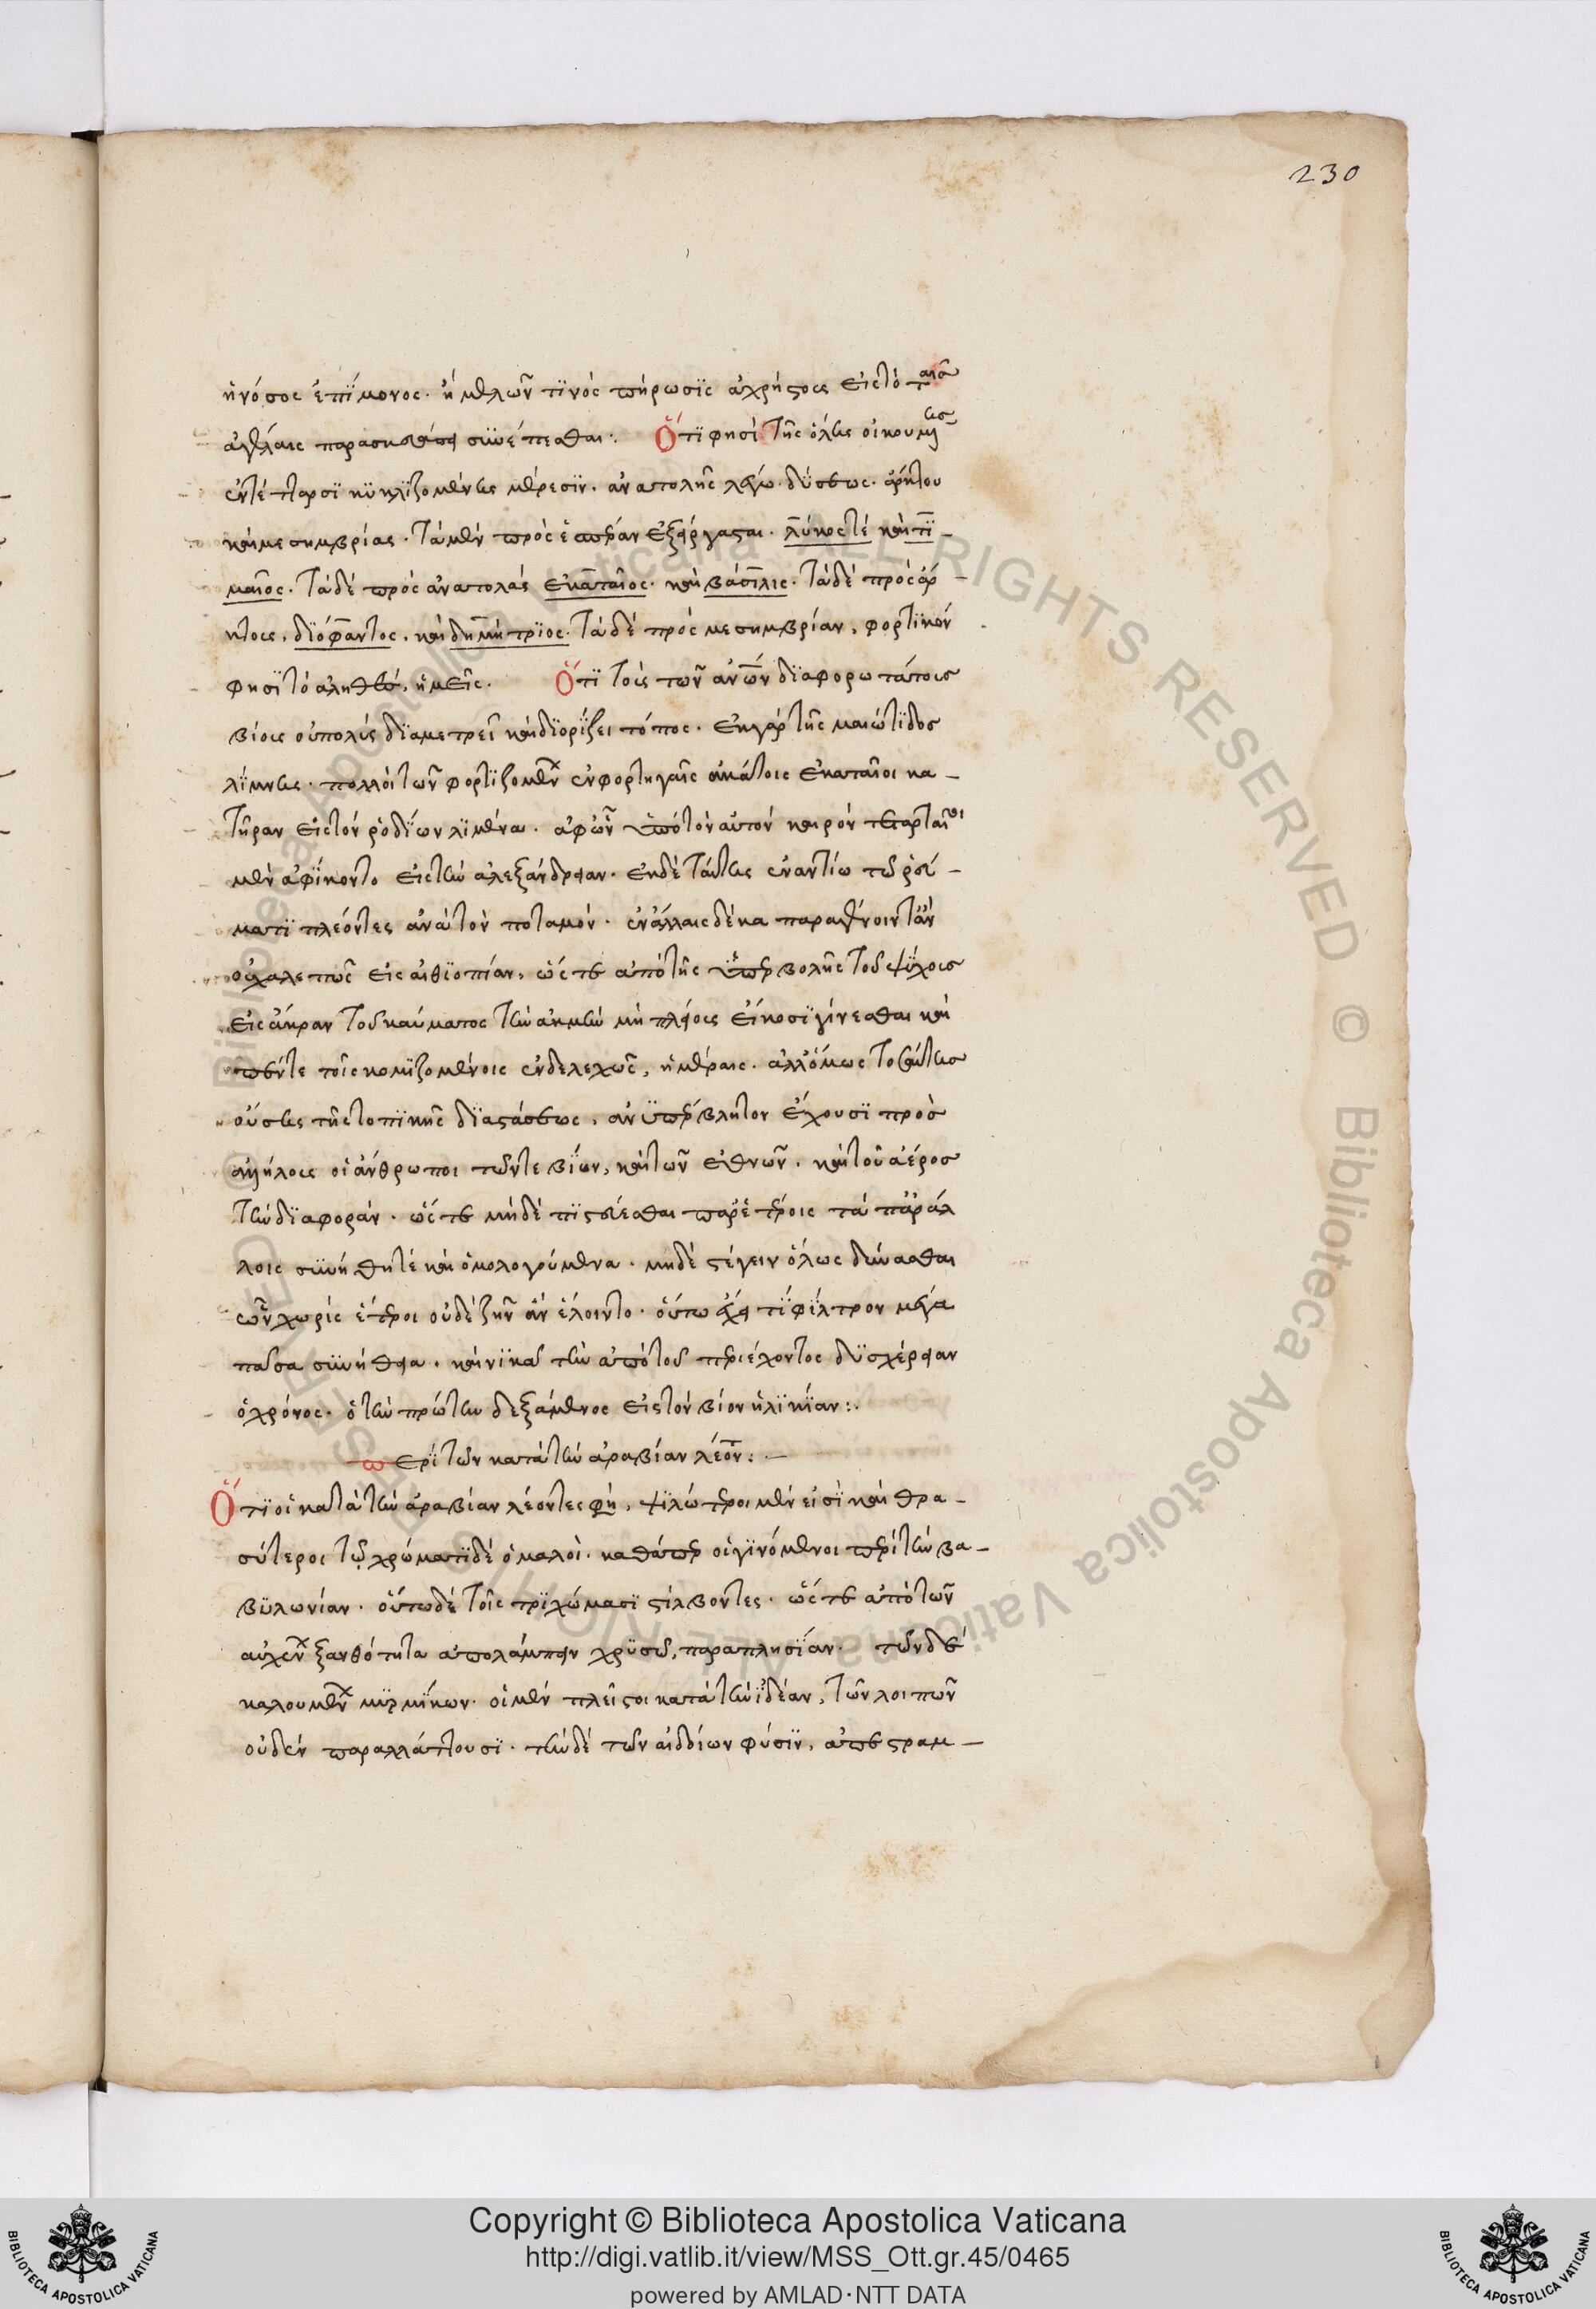 230
ἡ νόσος ἐπίμονος. ἡ μελῶν τινὸς πήρωσις ἀχρήστους εἰς τὸ ταῖς
ἀγέλαις παρασκευάσει συνέπεσθαι:. Ὅτι φησὶ τῆς ὅλης οἰκουμένης
ἐν τέτταρσι κυκλιζομένης μέρεσιν. ἀνατολῆς λέγω. δύσεως. ἄρκτου
καὶ μεσημβρίας. τὰ μὲν πρὸς ἑσπέραν ἐξείργασται. λύκος τὲ καὶ τι-
μαῖος. τὰ δὲ πρὸς ἀνατολὰς ἑκαταῖος. καὶ βάσιλις. τὰ δὲ πρὸς ἄρ-
κτους, διόφαντος, καὶ δημήτριος. τὰ δὲ πρὸς μεσημβρίαν, φορτικὸν
φησὶ τὸ ἀληθὲς, ἡμεῖς. Ὅτι τοὺς τῶν ἀνῶν διαφορωτάτους
βίους οὐ πολὺς διαμετρεῖ καὶ διορίζει τόπος. ἐκ γὰρ τῆς μαιώτιδος
λίμνης. πολλοὶ τῶν φορτιζομένων ἐν φορτηγαῖς ἀκάτοις ἑκαταῖοι κα-
τῆραν εἰς τὸν ῥοδίων λιμένα. ἀφ' ὧν ὑπὸ τὸν αὐτὸν καιρὸν τεταρταῖοι
μὲν ἀφίκοντο εἰς τὴν ἀλεξάνδρειαν. ἐκ δὲ ταύτης ἐναντίω τῶ ῥεύ-
ματι πλέοντες ἀνὰ τὸν ποταμὸν. ἐν ἄλλαις δέκα παραγένοιντ' ἂν
οὐ χαλεπῶς εἰς αἰθιοπίαν, ὥστε ἀπὸ τῆς ὑπερβολῆς τοῦ ψύχους
εἰς ἄκραν τοῦ καύματος τὴν ἀκμὴν μὴ πλείους εἴκοσι γίνεσθαι καὶ
πέντε τοῖς κομιζομένοις ἐνδελεχῶς, ἡμέραις. ἀλλ' ὅμως τοσαύτης
οὔσης τῆς τοπικῆς διαστάσεως, ἀνυπέρβλητον ἔχουσι πρὸς
ἀλλήλους οἱ ἄνθρωποι τῶν τε βίων, καὶ τῶν ἐθνῶν. καὶ τοῦ ἀέρος
τὴν διαφοράν. ὥστε μηδὲ πιστεύεσθαι παρ' ἑτέροις τὰ παρ' ἄλ
λοις συνήθη τὲ καὶ ὁμολογούμενα. μηδὲ στέγειν ὅλως δύνασθαι
ὧν χωρὶς ἕτεροι οὐδὲ ζῆν ἂν ἕλοιντο. οὕτω ἔχει τί φίλτρον μέγα
πᾶσα συνήθεια. καὶ νικᾶ τὴν ἀπὸ τοῦ περιέχοντος δυσχέρειαν
ὁ χρόνος. ὁ τὴν πρώτην δεξάμενος εἰς τὸν βίον ἡλικίαν:.
Περὶ τῶν κατὰ τὴν ἀραβίαν λεόντων:.
Ὅτι οἱ κατὰ τὴν ἀραβίαν λέοντες φη, ψιλώτεροι μὲν εἰσὶ καὶ θρα-
σύτεροι τῷ χρώματι δὲ ὁμαλοὶ. καθάπερ οἱ γινόμενοι περὶ τὴν βα-
βυλωνίαν. οὕτω δὲ τοῖς τριχώμασι στίλβοντες. ὥστε ἀπὸ τῶν
αὐχένων ξανθότητα ἀπολάμπειν χρυσῶ, παραπλησίαν. τῶν δὲ
καλουμένων μυρμίκων. οἱ μὲν πλεῖστοι κατὰ τὴν ἰδέαν, τῶν λοιπῶν
οὐδὲν παραλλάττουσι. τὴν δὲ τῶν αἰδοίων φύσιν, ἀπεστραμ-
Copyright © Biblioteca Apostolica Vaticana
http://digi.vatlib.it/view/MSS_Ott.gr.45/0465
powered by AMLAD·NTT DATA